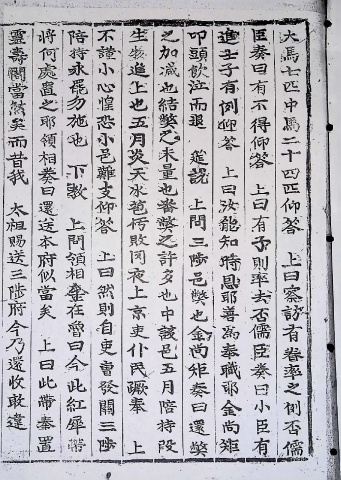 大馬七匹中馬二十四匹仰答　上曰察訪有眷率之例否儒
臣奏曰有不得仰答　上曰有子則率去否儒臣奏曰小臣有
進士子有例仰答　上曰汝能知時恩耶善爲奉職耶金尚矩
叩頭飲泣而退　筵說　上問三陟邑弊也金尚矩奏曰還弊
之加减也結弊之未量也蔘弊之許多也中該邑五月陪持段
生物進上也五月炎天水苞朽敗罔夜上京吏仆民蹶奏　上
不謹小心惶恐小邑難支仰答　上曰然則自吏曺發關三陟
陪持永罷勿施也　下敎　上問領相奎在魯曰今此紅犀帶
將何處置之耶領相奏曰還送本府似當矣　上曰此帶奉置
靈壽閣當然矣而昔我　太祖賜送三陟府今乃還收敢違